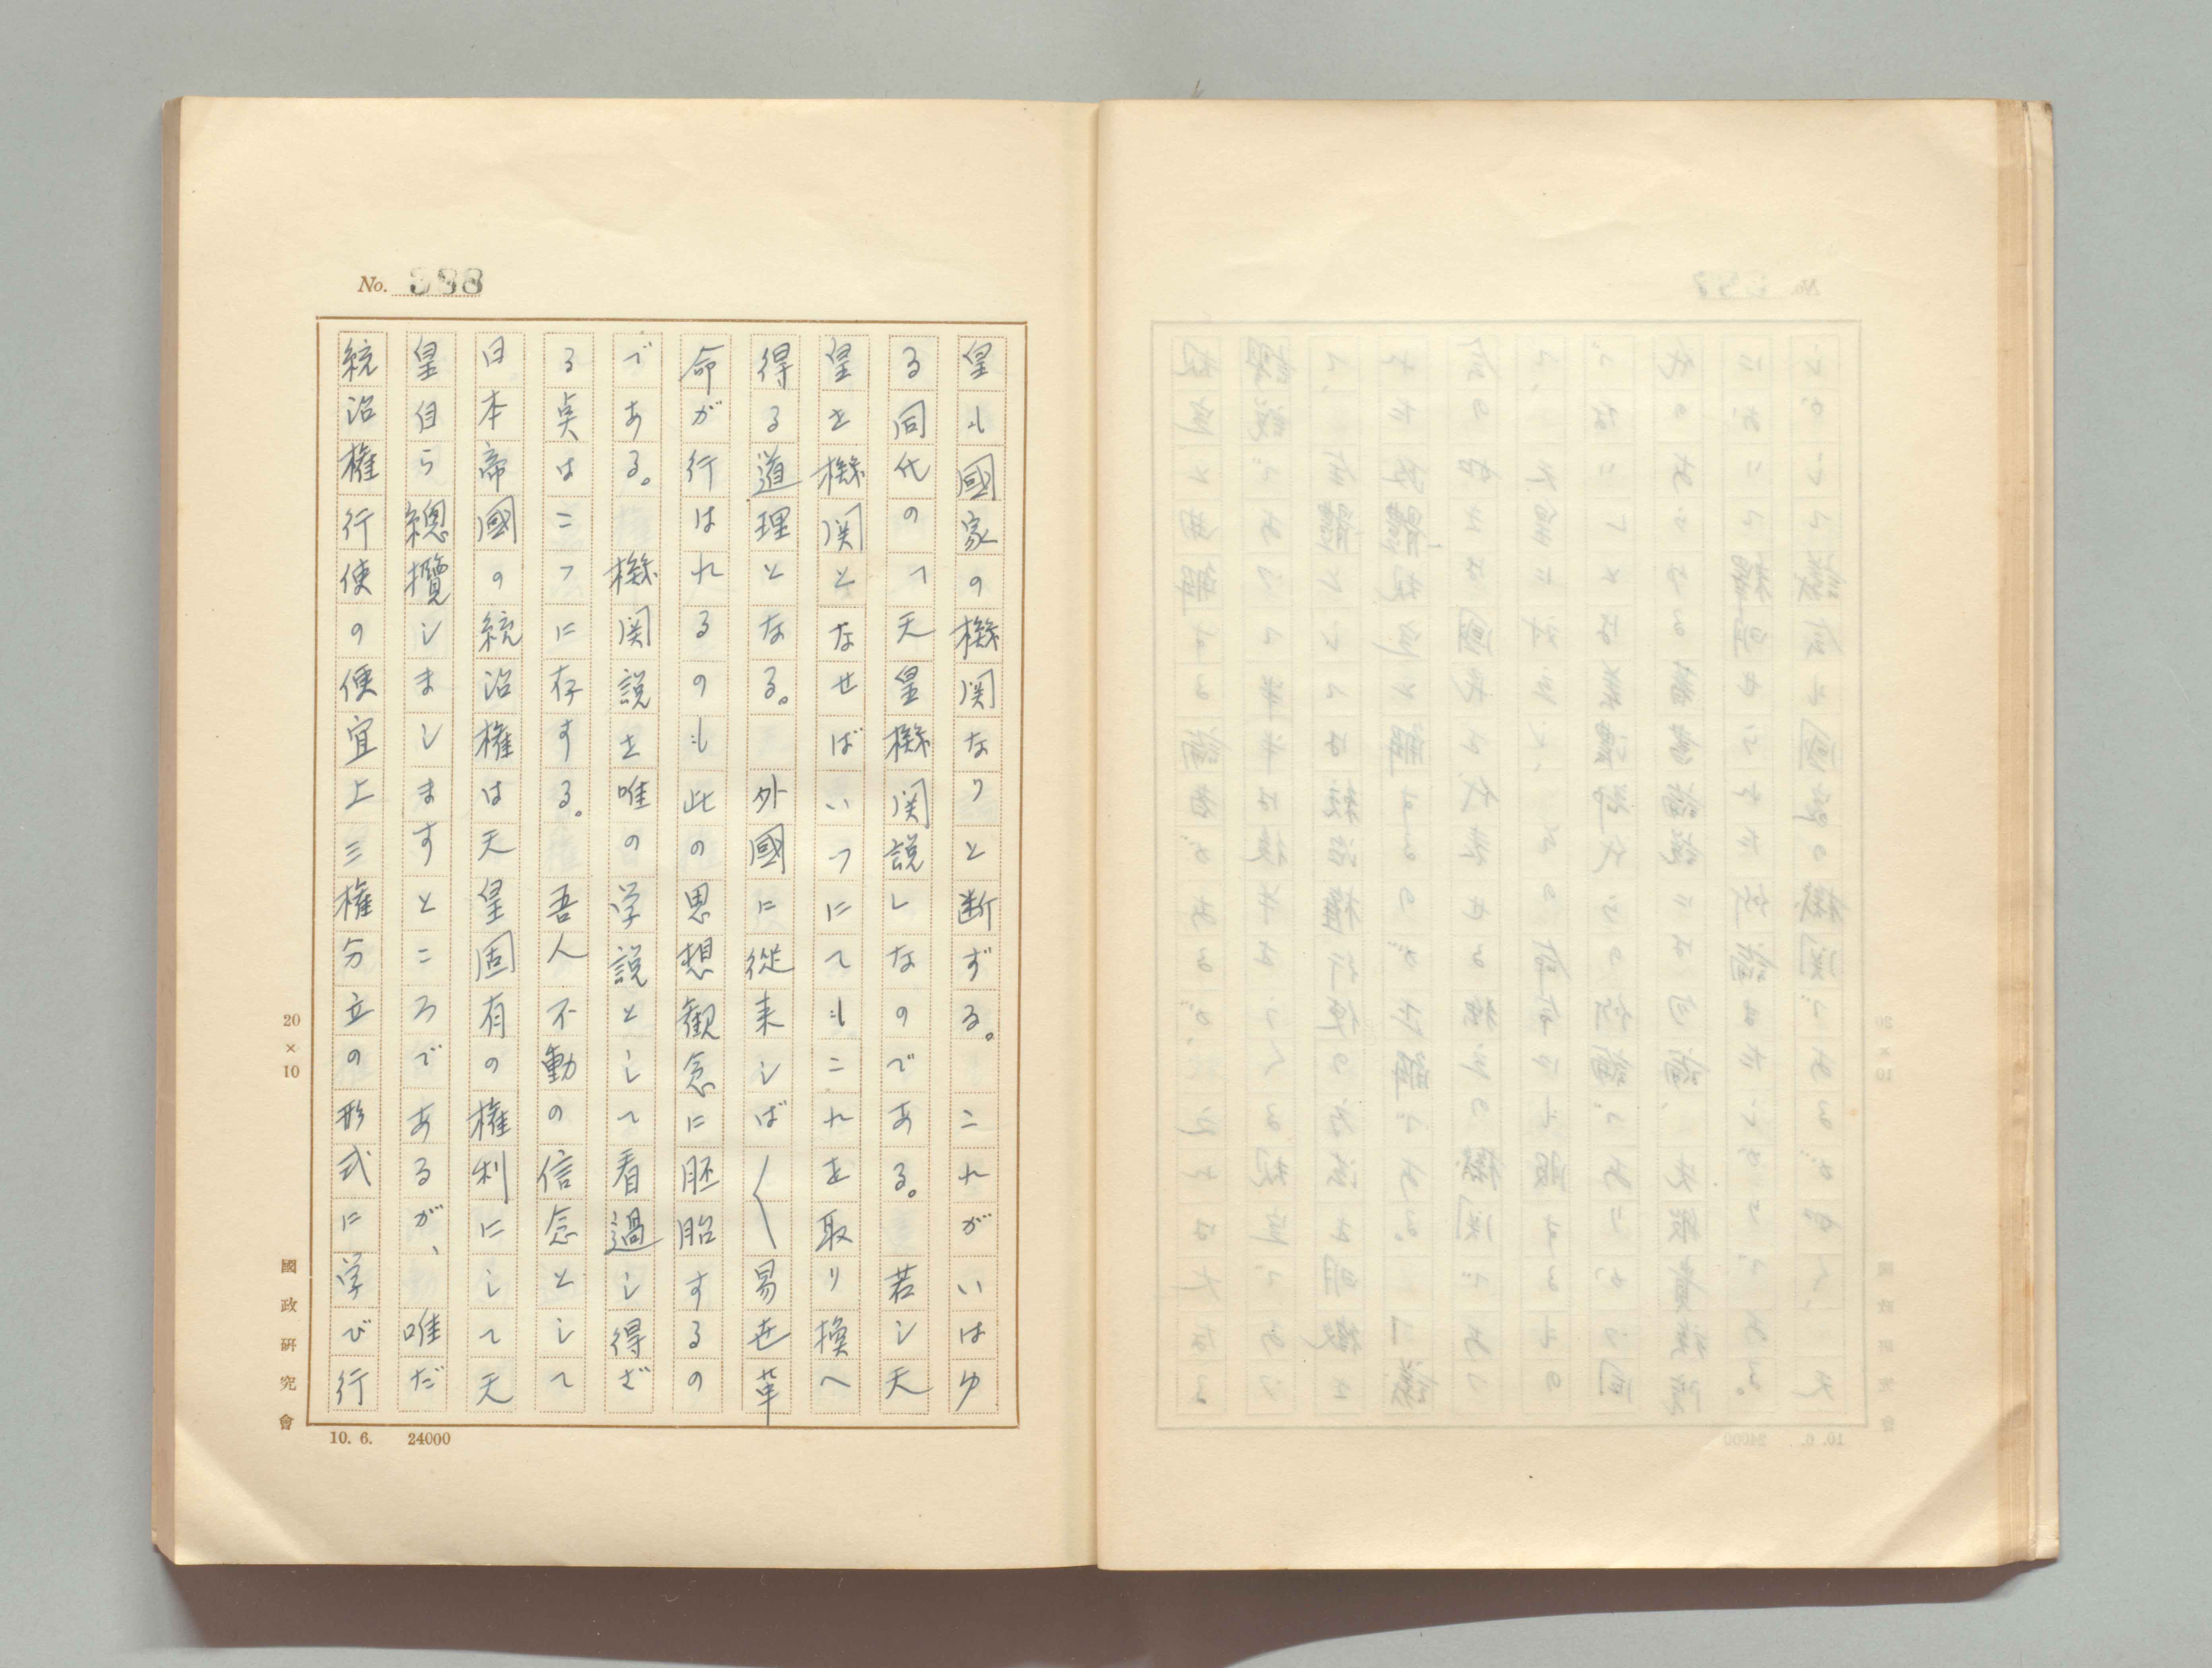 No. 388
皇も國家の機関なりと断ずる。これがいはゆ
る同代の「天皇機関説」なのである。若し天
皇を機関となせばいつにてもこれを取り換へ
得る道理となる。外國に従来しば〱易世革
命が行はれるのも此の思想観念に胚胎するの
である。機関説を唯の学説として看過し得ざ
る点はこゝに存する。吾人不動の信念として
日本帝國の統治権は天皇固有の権利にして天
皇自ら總攬しましますところであるが、唯だ
統治権行使の便宜上三権分立の形式に学び行
20×10
國政研究會
10. 6. 24000